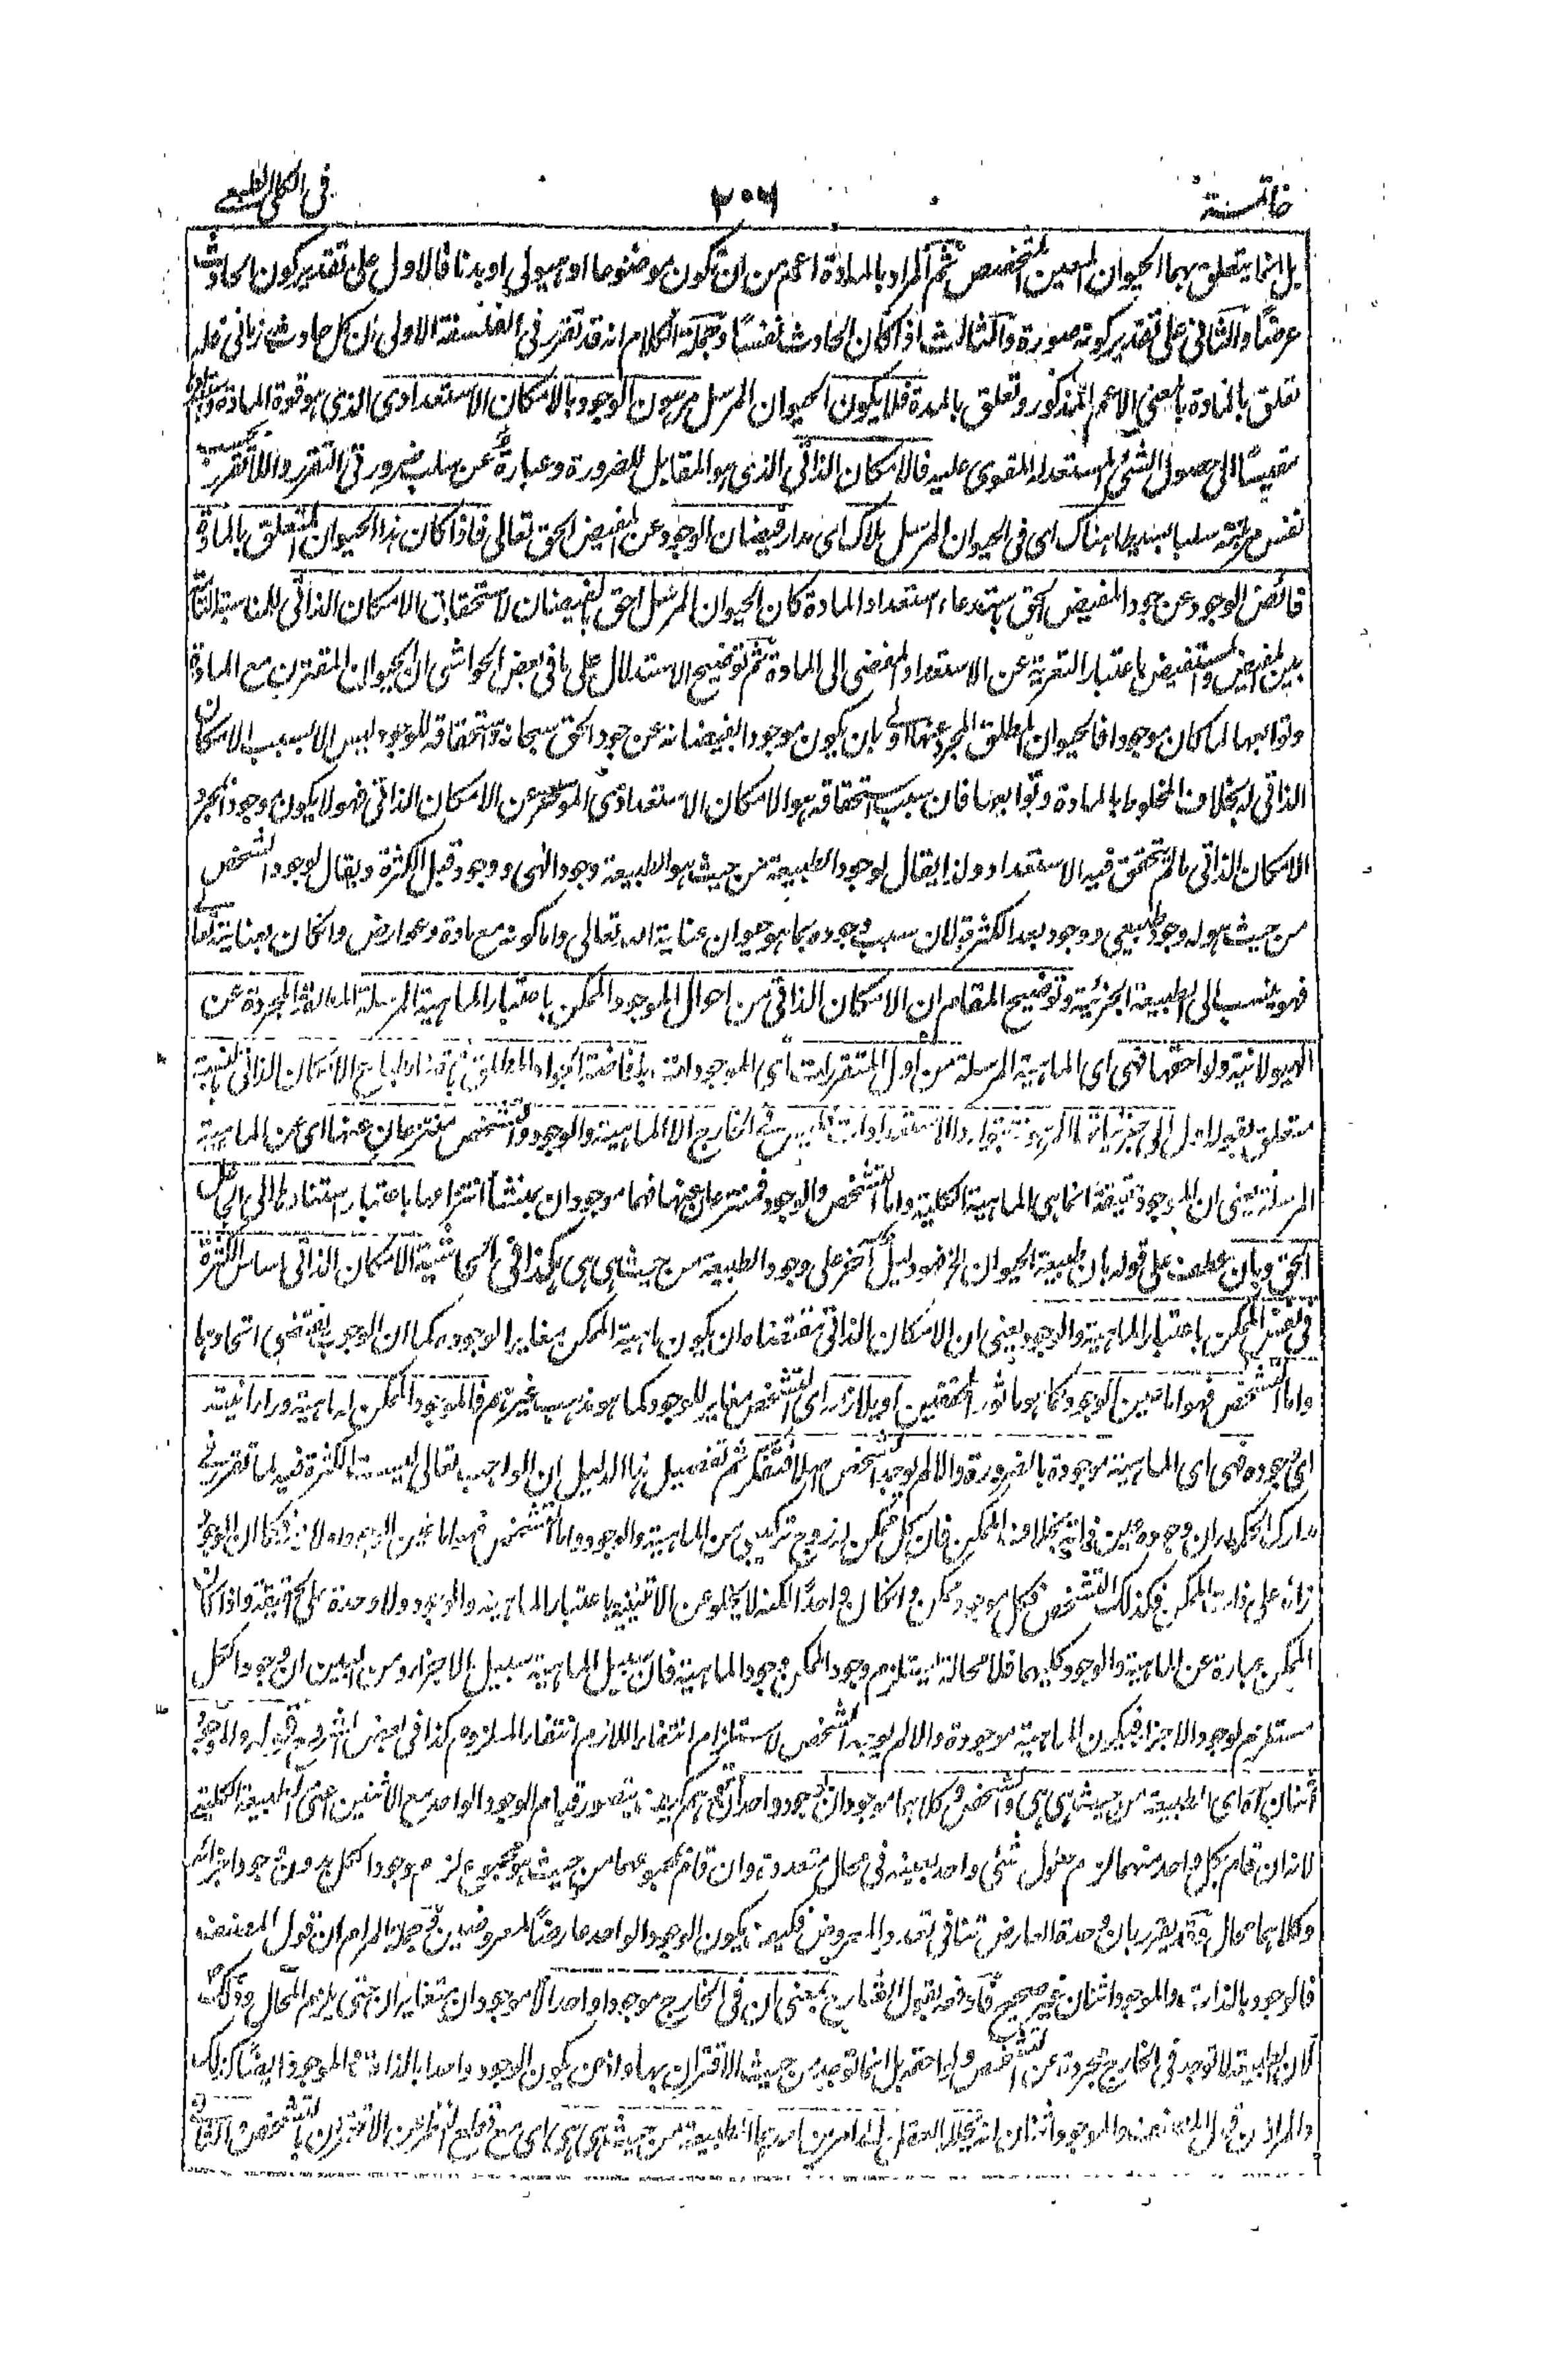 خاتمة
٣٠٦
فى الكلى الطبيعى
بل انما يتعلق بهما الحيوان المعين المتخصص ثم المراد بالمادة اعم من ان تكون موضوعا او هيولى او بدنا فالاول على تقدير كون الحادث
عرضًا والثانى على تقدير كونه صورة والثالث اذا كان الحادث نفسًا وجملة الكلام انه قد تقرر فى الفلسفة الاولى ان كل حادث زمانى فله
تعلق بالمادة بالمعنى الاعم المذكور وتعلق بالمدة فلا يكون الحيوان المرسل مرهون الوجود بالامكان الاستعدادى الذى هو قوة المادة
مقيسًا الى حصول الشئ المستعد له المقوى عليه فالامكان الذاتى الذى هو المقابل للضرورة وعبارة عن سلب ضرورتى التقرر واللاتقرر
نفس مرتبته سلبا بسيطا هناك اى فى الحيوان المرسل ملاك اى مدار فيضان الوجود عن المفيض الحق تعالى فاذا كان هذا الحيوان المتعلق بالمادة
فائض الوجود عن جود المفيض الحق باستدعاء استعداد المادة كان الحيوان المرسل احق بالفيضان لاستحقاق الامكان الذاتى للمناسبة التامة
بين المفيض والمستفيض باعتبار التعرية عن الاستعداد المفضى الى المادة ثم توضيح الاستدلال على ما فى بعض الحواشى ان الحيوان المقترن مع المادة
وتوابعها لما كان موجودا فالحيوان المطلق المجرد عنها اولى بان يكون موجودا لفيضانه عن جود الحق سبحانه واستحقاقه للوجود ليس الا بسبب الامكان
الذاتى له بخلاف المخلوط بالمادة وتوابعها فان سبب استحقاقه هو الامكان الاستعدادى المؤخر عن الامكان الذاتى فهو لا يكون موجودا بمجرد
الامكان الذاتى ما لم يتحقق فيه الاستعداد ولذا يقال لوجود الطبيعة من حيث هو الطبيعة وجود الهى ووجود قبل الكثرة ويقال لوجود الشخص
من حيث هو له وجود طبيعى ووجود بعد الكثرة لان سبب وجوده بما هو حيوان عناية الله تعالى واما كونه مع مادة وعوارض وان كان بعناية تعالى
فهو ينسب الى الطبيعة الجزئية وتوضيح المقام ان الامكان الذاتى من احوال الموجود الممكن باعتبار الماهية المرسلة المجردة عن
الهيولانية ولواحقها فهى اى الماهية المرسلة من اول المتقررات اى الموجودات بافاضة الجواد المطلق الامكان الذاتى
متعلق بقوله الى جزئياتها المرهونة بالمواد والاستعدادات فليس فى الخارج الا الماهية والوجود والتشخص منتزعان عنها اى عن الماهية
المرسلة يعنى ان الموجود حقيقة انما هى الماهية الكلية واما التشخص والوجود فمنتزعان عنها فهما موجودان بمنشأ انتزاعهما باعتبار استنادها الى الجاعل
الحق وبان عطف على قوله بان طبيعة الحيوان الخ فهو دليل آخر على وجود الطبيعة من حيث هى هى هكذا فى الحاشية الامكان الذاتى اساس الكثرة
فى نفس الممكن باعتبار الماهية والوجود يعنى ان الامكان الذاتى مقتضاه ان يكون ماهية الممكن مغايرا لوجوده كما ان الوجوب يقتضى اتحادهما
واما التشخص فهو اما عين الوجود كما هو ماثور المحققين او يلازمه اى التشخص مغاير للوجود كما هو مذهب غيرهم فالموجود الممكن له ماهية وراء انيته
اى وجوده فهى اى الماهية موجودة بالضرورة والا لم يوجد شخص مهلا فتفكر ثم تفصيل هذا الدليل ان الواجب تعالى ليست الكثرة فيه لما تقرر فى
مدارك الحكماء ان وجوده عين ذاته بخلاف الممكن فان كل ممكن زوج تركيبى من الماهية والوجود واما التشخص فهو اما عين الوجود او لازمه فكما ان الوجود
زائد على ذات الممكن فكذلك التشخص فكل موجود ممكن وان كان واحدًا لكنه لا يخلو عن الاثنينية باعتبار الماهية والوجود ولا وحدة على الحقيقة واذا كان
الممكن عبارة عن الماهية والوجود كليهما فلا محالة يستلزم وجود الممكن وجود الماهية فان سبيل الماهية سبيل الاجزاء ومن البين ان وجود الكل
مستلزم لوجود الاجزاء فيكون الماهية موجودة والا لم يوجد الشخص لاستلزام انتفاء اللازم انتفاء الملزوم كذا فى بعض الشروح قوله والموجود
اثنان آه اى الطبيعة من حيث هى هى والشخص فكلاهما موجودان بوجود واحد كيف يتصور قيام الوجود الواحد مع الاثنين اعنى الطبيعة الكلية
لانه ان قام بكل واحد منهما لزم حلول شئ واحد بعينه فى محال متعددة وان قام بمجموعهما من حيث هو مجموع لزم وجود الكل بدون وجود اجزائه
وكلاهما محال وقد يقرر بان وحدة العارض تنافى تعدد المعروض فكيف يكون الوجود الواحد عارضًا لمعروضين ومحصل المرام ان قول المصنف
فالوجود بالذات والموجود اثنان غير صحيح فدفعه بقوله الشارح بمعنى ان فى الخارج موجودا واحدا لا موجودان متغايران حتى يلزم المحال وذلك
لان الطبيعة لا توجد فى الخارج مجردة عن التشخص ولواحقه بل انما توجد من حيث الاقتران بها واذن يكون الوجود واحدا بالذات والموجود ايضًا كذلك
والمراد من قول المصنف والموجود اثنان انه يحلله العقل الى امرين احدهما الطبيعة من حيث هى هى اى مع قطع النظر عن الاقتران بالتشخص